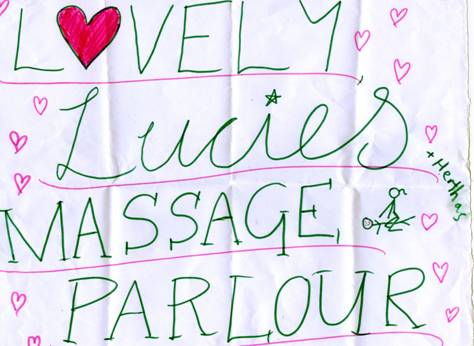 LOVELY
Lucie's
+ Hertha's
MASSAGE
PARLOUR